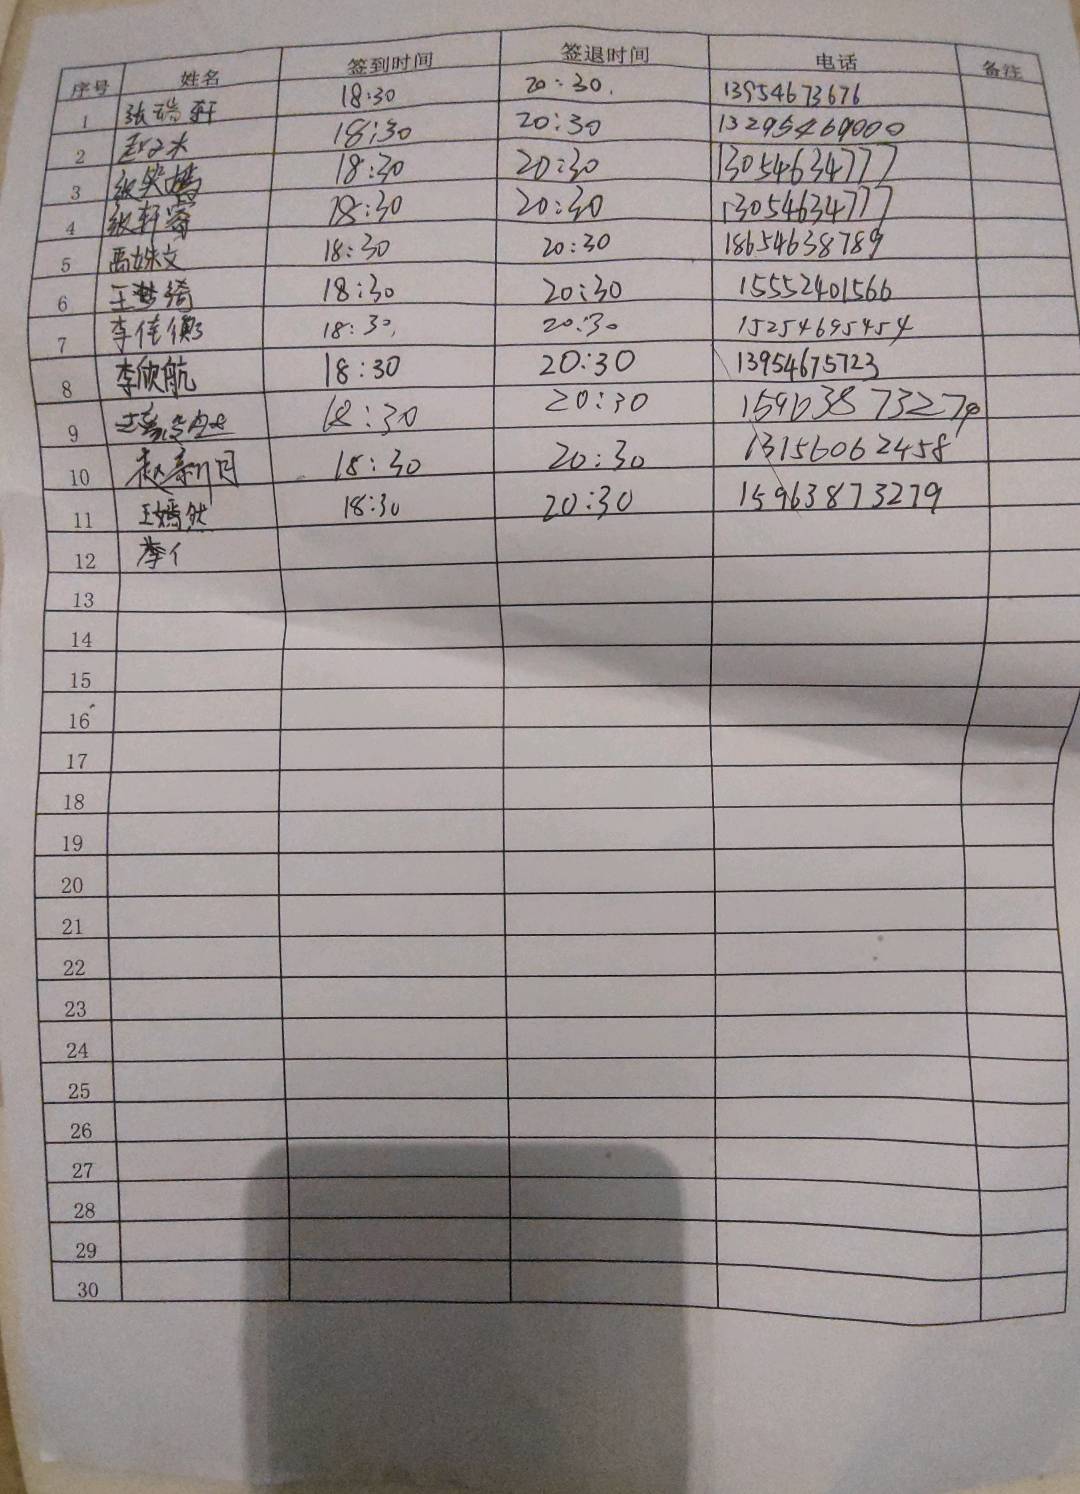 序号 姓名 签到时间 签退时间 电话 备注
1 张瑞轩 18:30 20:30. 13954673676
2 18:30 20:30 13295469000
3 张笑嫣 18:30 20:30 13054634777
4 张轩睿 18:30 20:30 13054634777
5 高姝文 18:30 20:30 18654638789
6 王梦绮 18:30 20:30 15552401566
7 李佳 18:30. 20:30 15254695454
8 李欣航 18:30 20:30 13954675723
9 18:30 20:30
10 赵新月 18:30 20:30 13156062458
11 王嫣然 18:30 20:30 15963873279
12 李
13
14
15
16
17
18
19
20
21
22
23
24
25
26
27
28
29
30